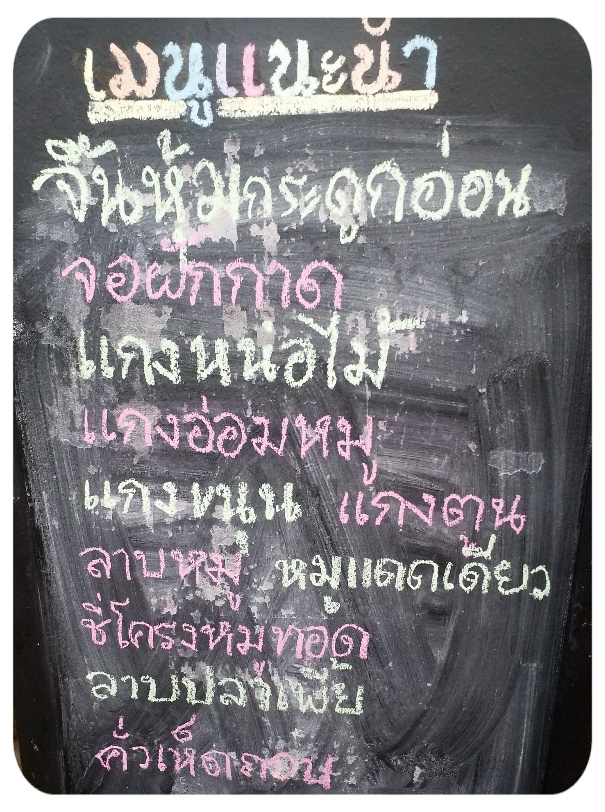 เมนูแนะนำ
จิ๊นหุ้มกระดูกอ่อน
จอผักกาด
แกงหน่อไม้
แกงอ่อมหมู
แกงขนุน แกงตูน
ลาบหมู หมูแดดเดียว
ซี่โครงหมูทอด
ลาบปลาเพี้ย
คั่วเห็ดถอบ